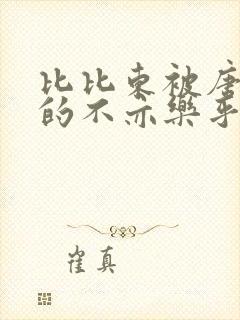 比比东被唐
的不亦樂乎
崔真